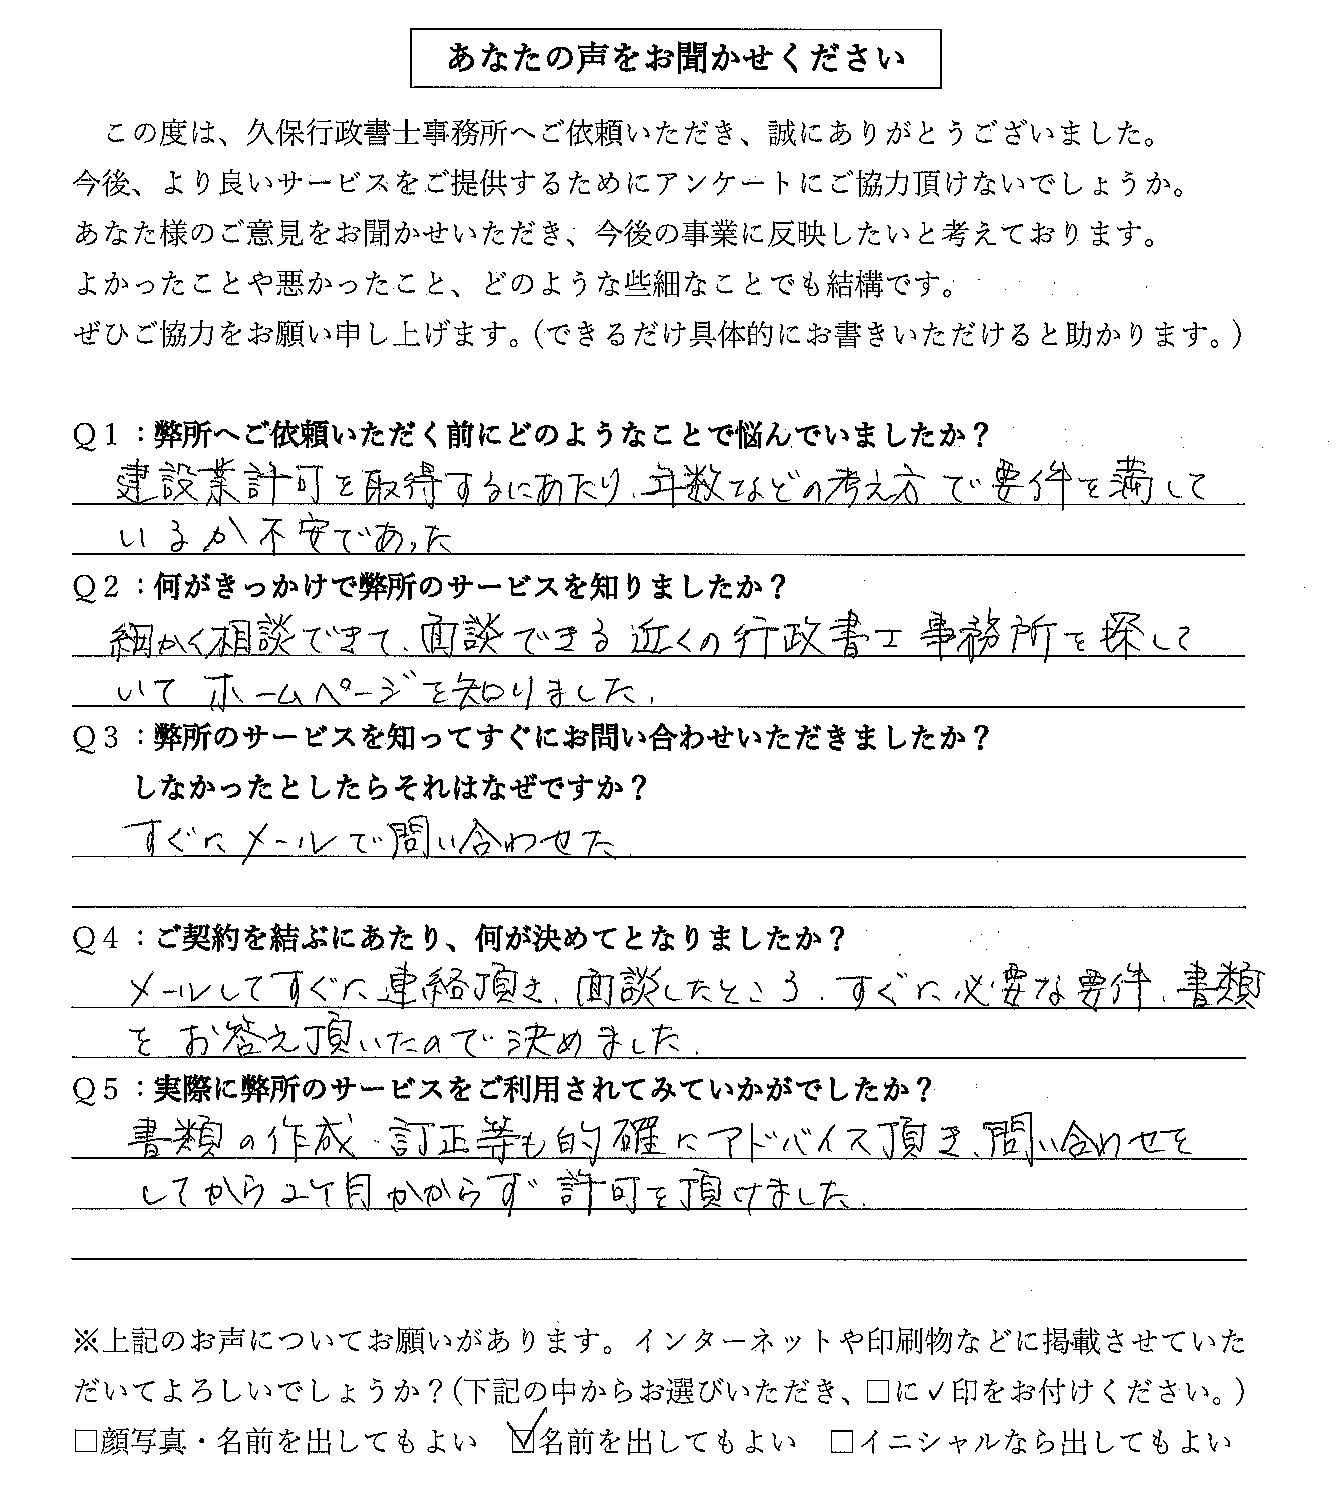 あなたの声をお聞かせください
この度は、久保行政書士事務所へご依頼いただき、誠にありがとうございました。
今後、より良いサービスをご提供するためにアンケートにご協力頂けないでしょうか。
あなた様のご意見をお聞かせいただき、今後の事業に反映したいと考えております。
よかったことや悪かったこと、どのような些細なことでも結構です。
ぜひご協力をお願い申し上げます。（できるだけ具体的にお書きいただけると助かります。）
Q1：弊所へご依頼いただく前にどのようなことで悩んでいましたか？
建設業許可を取得するにあたり、年数などの考え方で要件を満して
いるか不安であった
Q2：何がきっかけで弊所のサービスを知りましたか？
細かく相談できて、面談できる近くの行政書士事務所を探して
いてホームページを知りました.
Q3：弊所のサービスを知ってすぐにお問い合わせいただきましたか？
しなかったとしたらそれはなぜですか？
すぐにメールで問い合わせた
Q4：ご契約を結ぶにあたり、何が決めてとなりましたか？
メールしてすぐに連絡頂き、面談したところ、すぐに必要な要件、書類
をお答え頂いたので決めました.
Q5：実際に弊所のサービスをご利用されてみていかがでしたか？
書類の作成・訂正等も的確にアドバイス頂き、問い合わせを
してから2ケ月かからず許可を頂けました.
※上記のお声についてお願いがあります。インターネットや印刷物などに掲載させていた
だいてよろしいでしょうか？（下記の中からお選びいただき、□に✓印をお付けください。）
□顔写真・名前を出してもよい ☑名前を出してもよい □イニシャルなら出してもよい